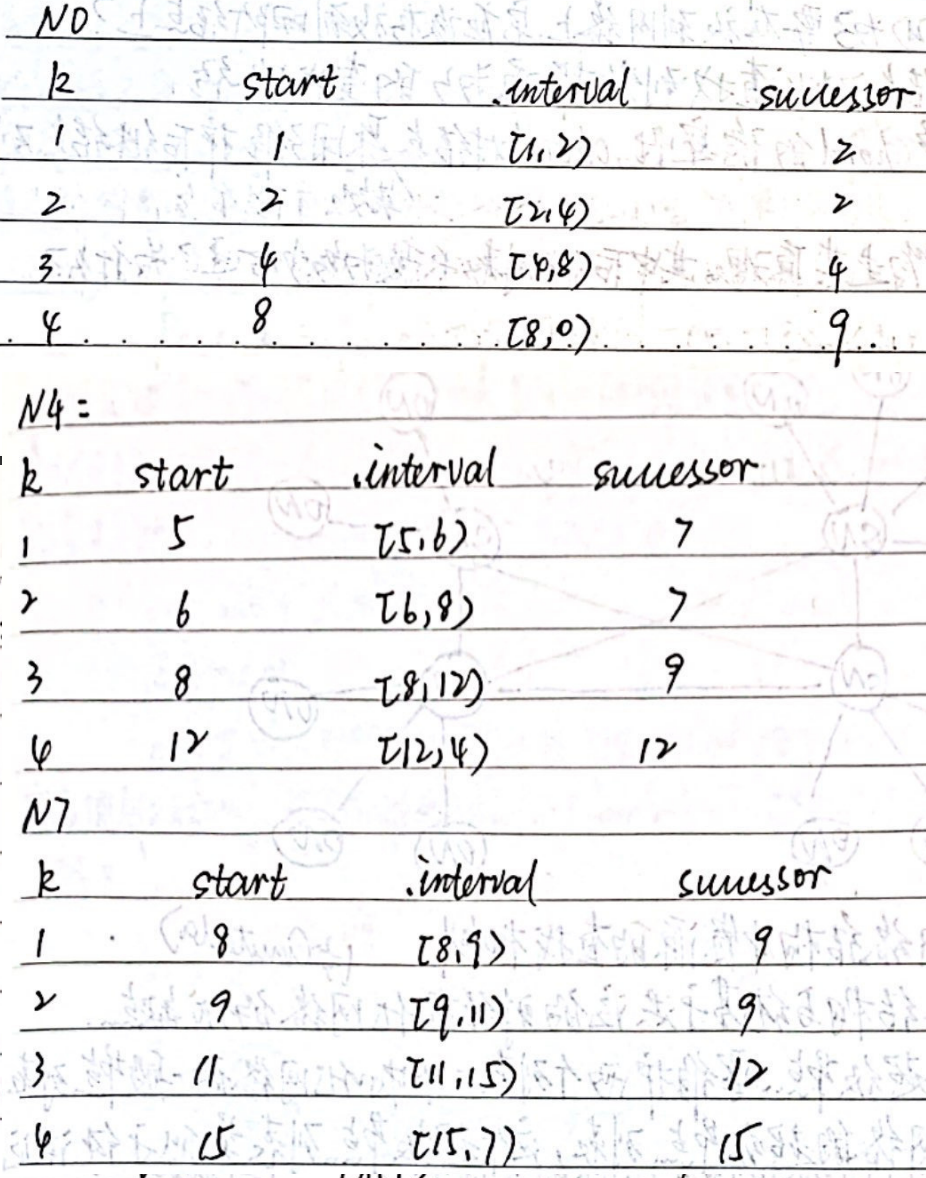 N0
k start .interval successor
1 1 [1,2) 2
2 2 [2,4) 2
3 4 [4,8) 4
4 8 [8,0) 9
N4:
k start .interval successor
1 5 [5,6) 7
2 6 [6,8) 7
3 8 [8,12) 9
4 12 [12,4) 12
N7
k start .interval successor
1 8 [8,9) 9
2 9 [9,11) 9
3 11 [11,15) 12
4 15 [15,7) 15